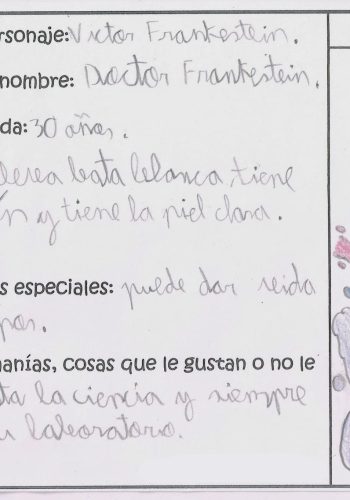 rsonaje: Victor Frankestein.
nombre: Doctor Frankestein.
da: 30 años.
bata blanca, tiene
n y tiene la piel clara.
s especiales: puede dar
pos.
anías, cosas que le gustan o no le
ta la ciencia y siempre
laboratorio.